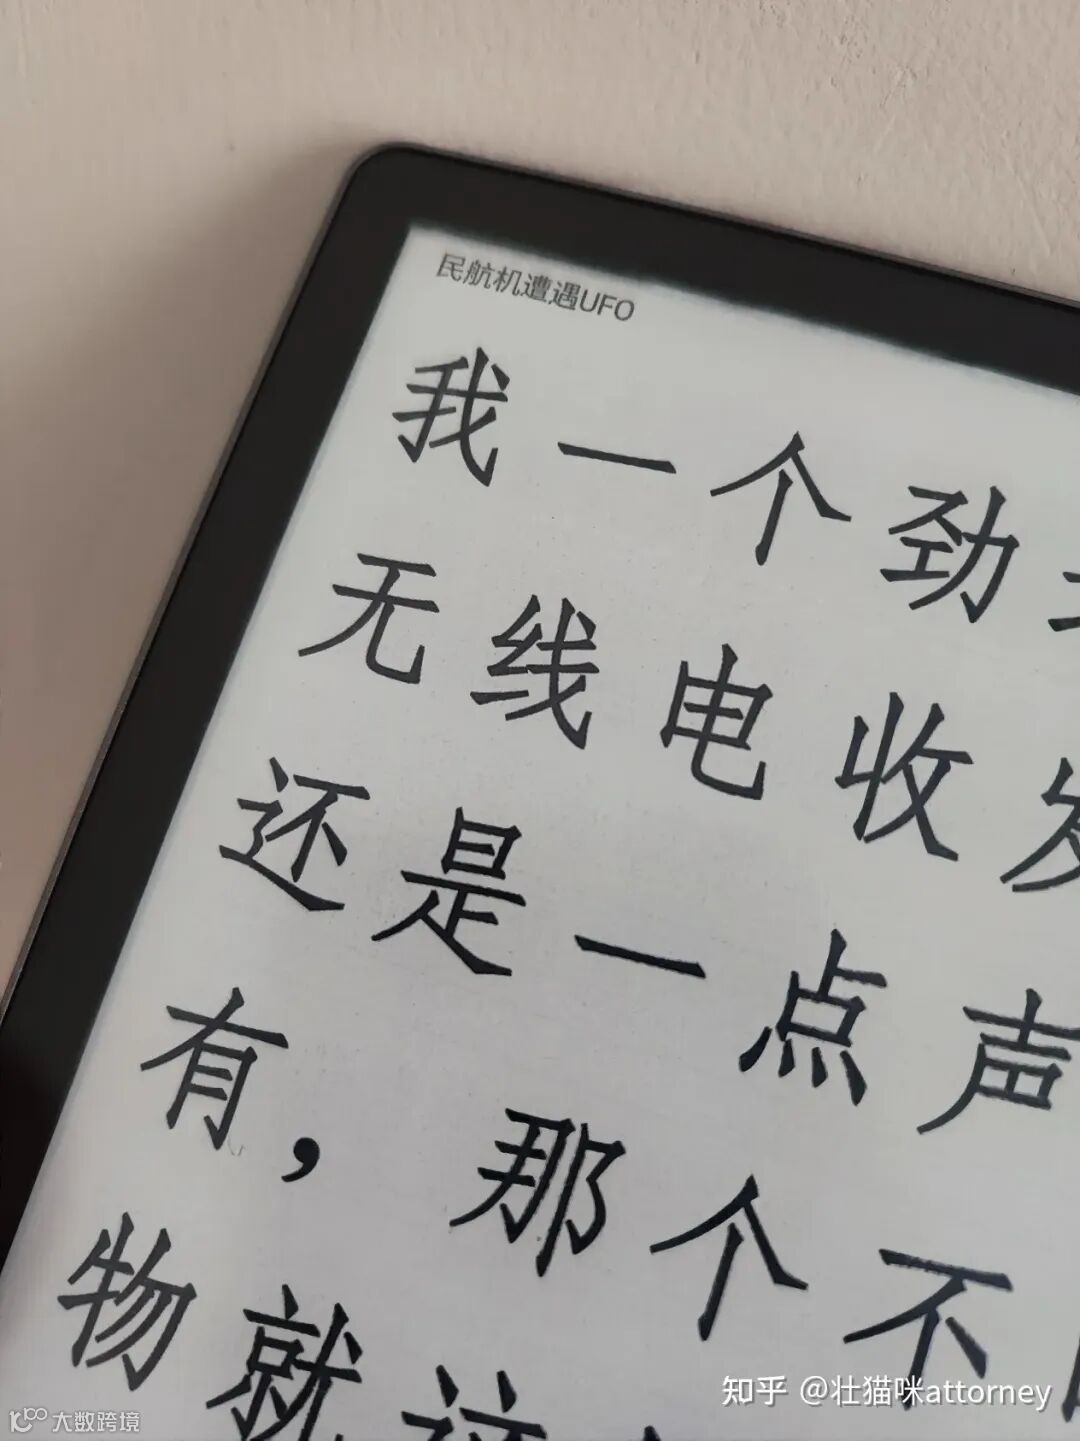 民航机遭遇UFO
我一个劲
无线电收发
还是一点声
有，那个不
物就这
知乎 @壮猫咪attorney
大数跨境